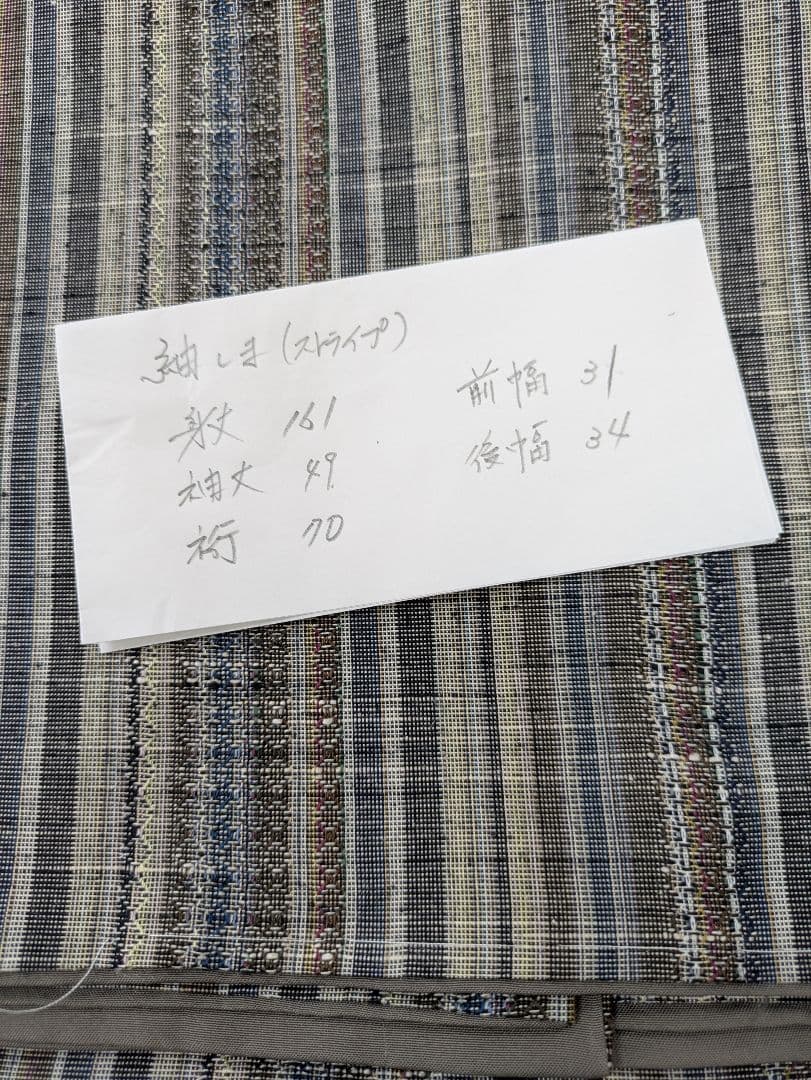 紬しま(ストライプ)
身丈 161
袖丈 49
裄 70
前幅 31
後幅 34